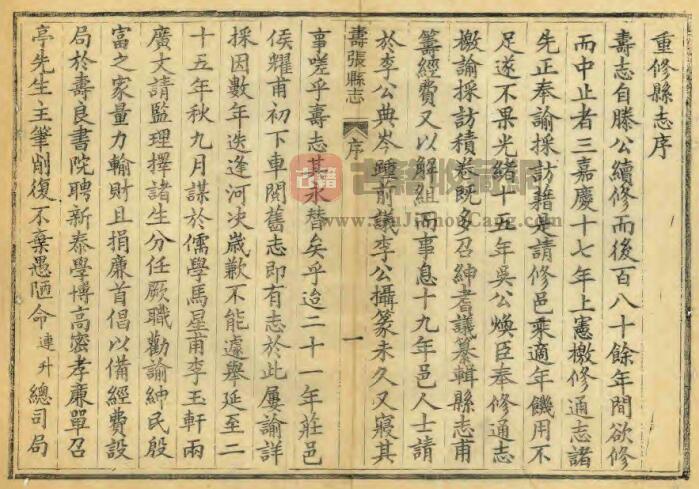 重修縣志序
壽志自滕公續修而後百八十餘年間欲修
而中止者三嘉慶十七年上憲檄修通志諸
先正奉諭採訪藉是請修邑乘適年饑用不
足遂不果光緒十五年吳公煥臣奉修通志
檄諭採訪積卷既多召紳耆議纂輯縣志甫
籌經費又以解組而事息十九年邑人士請
於李公典岑踵前議李公攝篆未久又寢其
壽張縣志
序
一
事嗟乎壽志其永替矣乎迨二十一年莊邑
侯耀甫初下車閱舊志即有志於此屢諭詳
採因數年迭逢河決歲歉不能遽舉延至二
十五年秋九月謀於儒學馬星甫李玉軒兩
廣文請監理擇諸生分任厥職勸諭紳民殷
富之家量力輸財且捐廉首倡以備經費設
局於壽良書院聘新泰學博高密孝廉單召
亭先生主筆削復不棄愚陋命連升總司局
古籍收藏網
www.GuJiShouCang.com